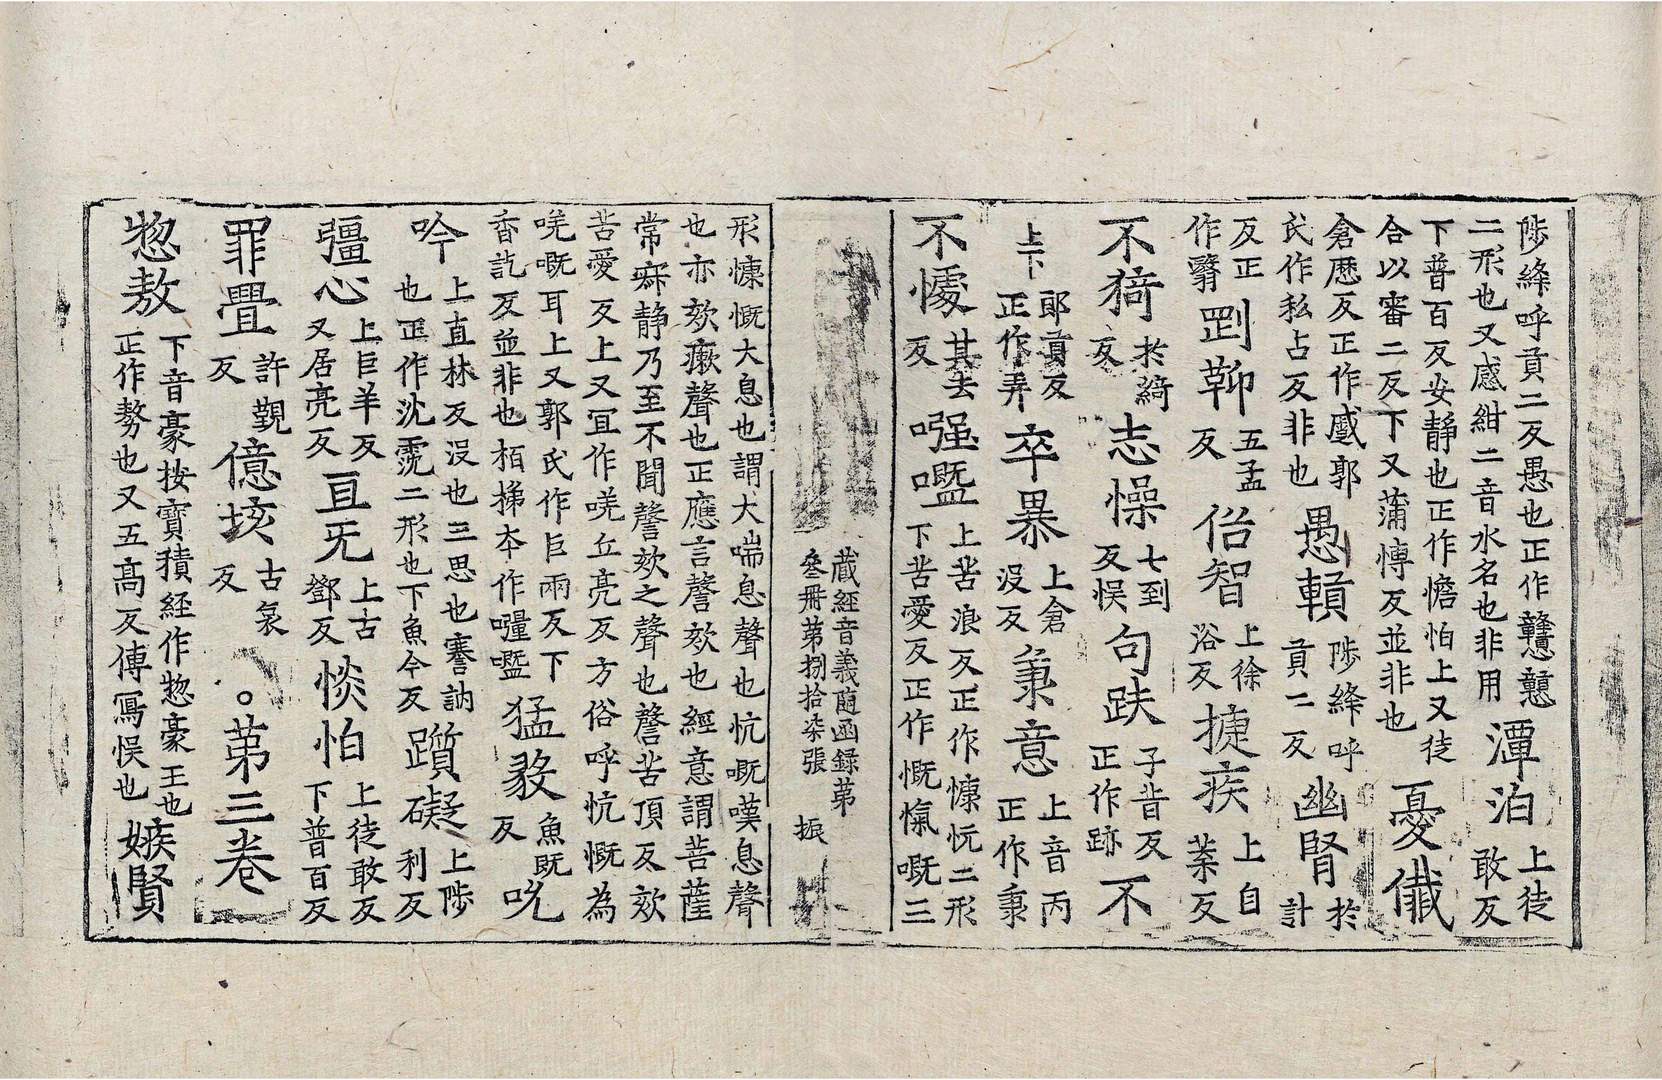 陟絳呼貢二反愚也正作戇戆
二形也又感紺二音水名也非用潭泊上徒敢反
下普百反安靜也正作憺怕上又徒
合以審二反下又蒲愽反並非也憂儎
倉歴反正作慼郭
氏作私占反非也愚𩓞陟絳呼貢二反幽腎於計
反正作翳罰鄿五孟反佁智上徐浴反捷疾上自葉反
不猗於綺反志懆七到反悮句趺子昔反正作跡不
上下郎貢反正作弄卒暴上倉沒反秉意上音丙正作秉
不懅其去反㘐嘅上苦浪反正作慷忼二形下苦愛反正作慨愾嘅三
藏經音義隨函録第
叄册苐捌拾柒張 振
形慷慨大息也謂大喘息聲也忼嘅嘆息聲
也亦欬瘶聲也正應言謦欬也經意謂菩薩
常寂静乃至不聞謦欬之聲也謦苦頂反欬
苦愛反上又冝作唴丘亮反方俗呼忼慨為
唴嘅耳上又郭氏作巨兩反下
香訖反並非也栢梯夲作㘐嘅猛毅魚既反吮
吟上直林反没也三思也謇訥
也正作沈霃二形也下魚今反躓礙上陟利反
彊心上巨羊反又居亮反亘旡上古鄧反惔怕上徒敢反下普百反
罪舋許覲反億垓古哀反。苐三卷
惣敖下音豪按寶積經作惣豪王也
正作勢也又五高反傳寫悮也嫉賢